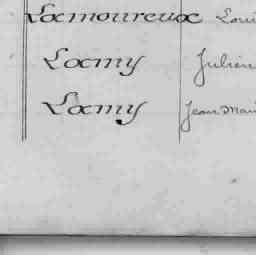 Lamoureux Loui
Lamy Julien
Lamy Jean Mari